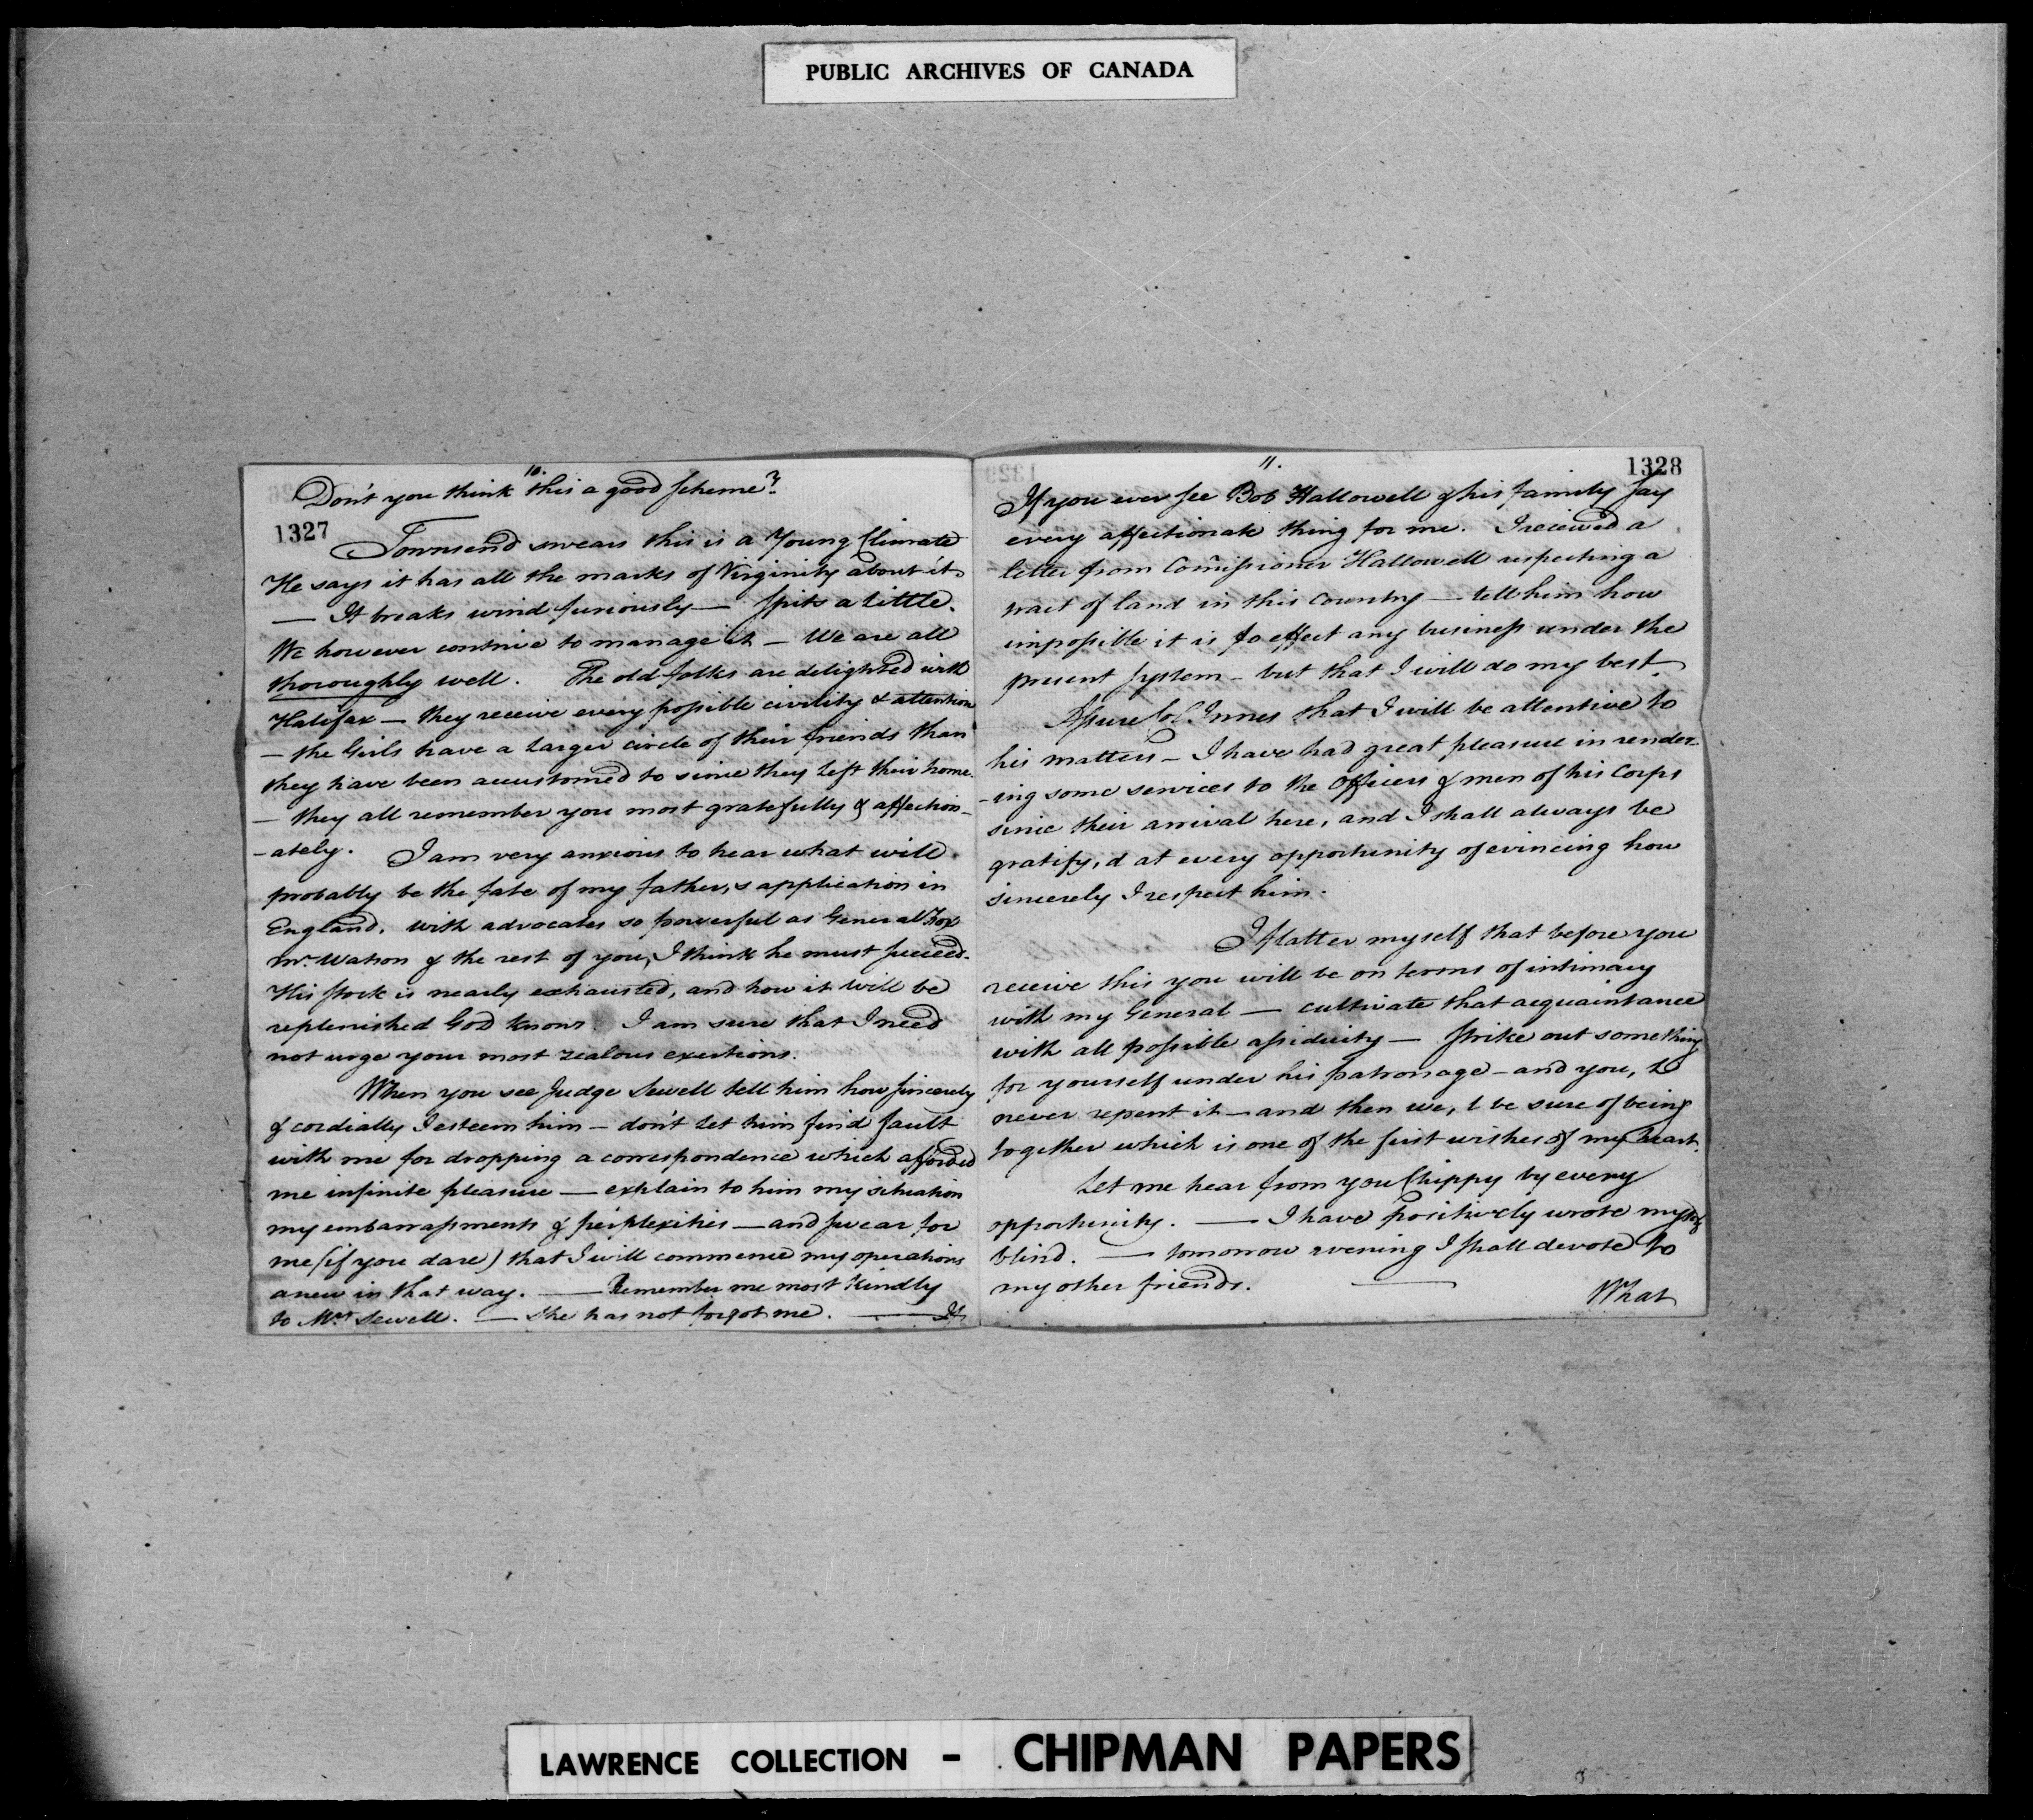 PUBLIC ARCHIVES OF CANADA
10.
Don't you think this a good scheme?
1327
Townsend swears this is a Young Climate
He says it has all the marks of Virginity about it.
— It breaks wind furiously — spits a little.
We however contrive to manage it — We are all
thoroughly well. The old folks are delighted with
Halifax — they receive every possible civility & attention
— the Girls have a larger circle of their friends than
they have been accustomed to since they left their home.
— they all remember you most gratefully & affection-
-ately. I am very anxious to hear what will
probably be the fate of my father,s application in
England. with advocates so powerful as General Fox
Mr. Watson & the rest of you, I think he must succeed.
His stock is nearly exhausted, and how it will be
replenished God knows. I am sure that I need
not urge your most zealous exertions.
When you see Judge Sewell tell him how sincerely
& cordially I esteem him — don't let him find fault
with me for dropping a correspondence which afforded
me infinite pleasure — explain to him my situation
my embarrassments & perplexities — and swear for
me (if you dare) that I will commence my operations
anew in that way. — Remember me most kindly
to Mrs Sewell. — She has not forgot me. — If
11.
1328
If you ever see Bob Hallowell & his family say
every affectionate thing for me. I received a
letter from Comissioner Hallowell respecting a
tract of land in this Country — tell him how
impossible it is to effect any business under the
present system — but that I will do my best.
Assure Col. Innes that I will be attentive to
his matters — I have had great pleasure in render-
-ing some services to the Officers & men of his Corps
since their arrival here, and I shall always be
gratify,d at every opportunity of evincing how
sincerely I respect him.
I flatter myself that before you
receive this you will be on terms of intimacy
with my General — cultivate that acquaintance
with all possible assiduity — strike out something
for yourself under his patronage — and you,ll
never repent it — and then we,l be sure of being
together which is one of the first wishes of my heart.
Let me hear from you Chippy by every
opportunity. — I have positively wrote myself
blind. — tomorrow evening I shall devote to
my other friends. —
What
LAWRENCE COLLECTION - CHIPMAN PAPERS